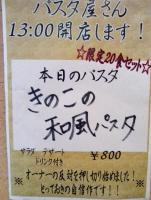 パスタ屋さん
13:00開店します!
☆限定20食セット☆
本日のパスタ
きのこの
和風パスタ
サラダ デザート
ドリンク付き
¥800
※オーナーの反対を押し切り始めました!
とっておきの自信作です!!